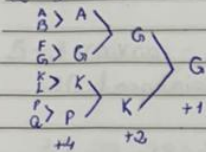 A
B > A
G
F
G > G
G
K
L > K
P
Q > P
K
+1
+4
+2